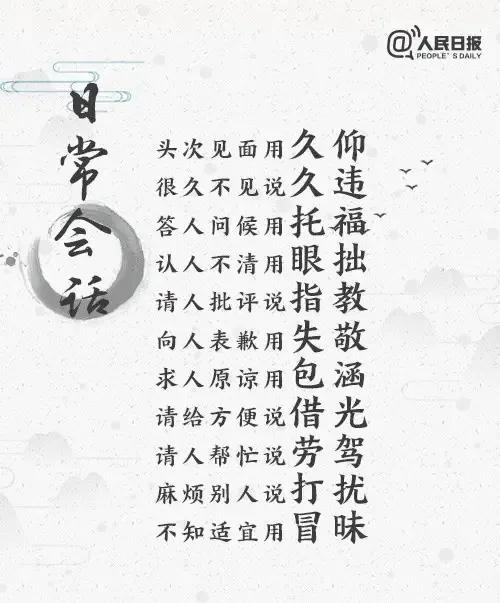 @人民日报
PEOPLE'S DAILY
日常会话
头次见面用久仰
很久不见说久违
答人问候用托福
认人不清用眼拙
请人批评说指教
向人表歉用失敬
求人原谅用包涵
请给方便说借光
请人帮忙说劳驾
麻烦别人说打扰
不知适宜用冒昧